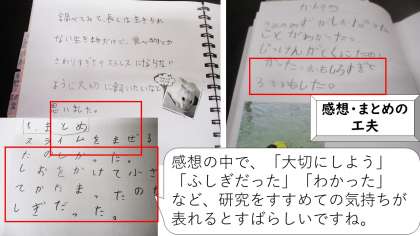 調べてみて、長くは生きられ
ない生き物だけど、食べ物とか
さわりすぎてストレスにならない
ように大切に飼いたいなと
思いました。
5, まとめ
スライムをまぜる
たのしかった。
しおをかけて小さ
てかたまったのた
しぎだった。
かんそう
ことがわかった。
じっけんがとくにたの
かった。おもしろすぎて
感想・まとめの
工夫
感想の中で、「大切にしよう」
「ふしぎだった」「わかった」
など、研究をすすめての気持ちが
表れるとすばらしいですね。